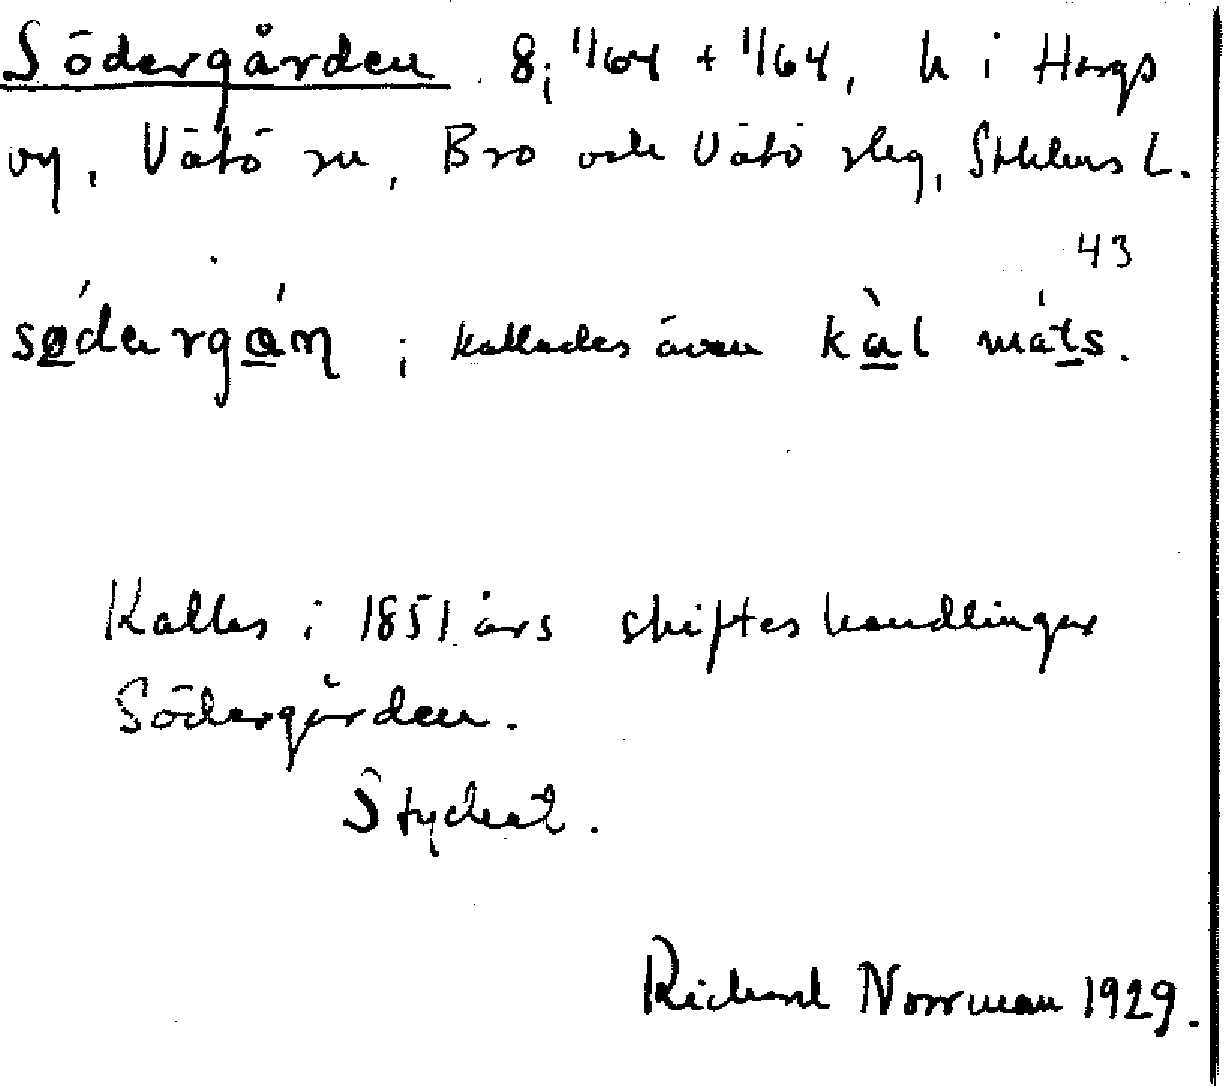 Södergården 8; 11/64 + 11/64, h i Hargs
by, Vätö sn, Bro och Vätö slg, Sthlms L.
43
södərgán ; kallades även kàl máts.
Kallas i 1851 års skifteshandlingar
Södergården.
Styckat.
Richard Norrman 1929.